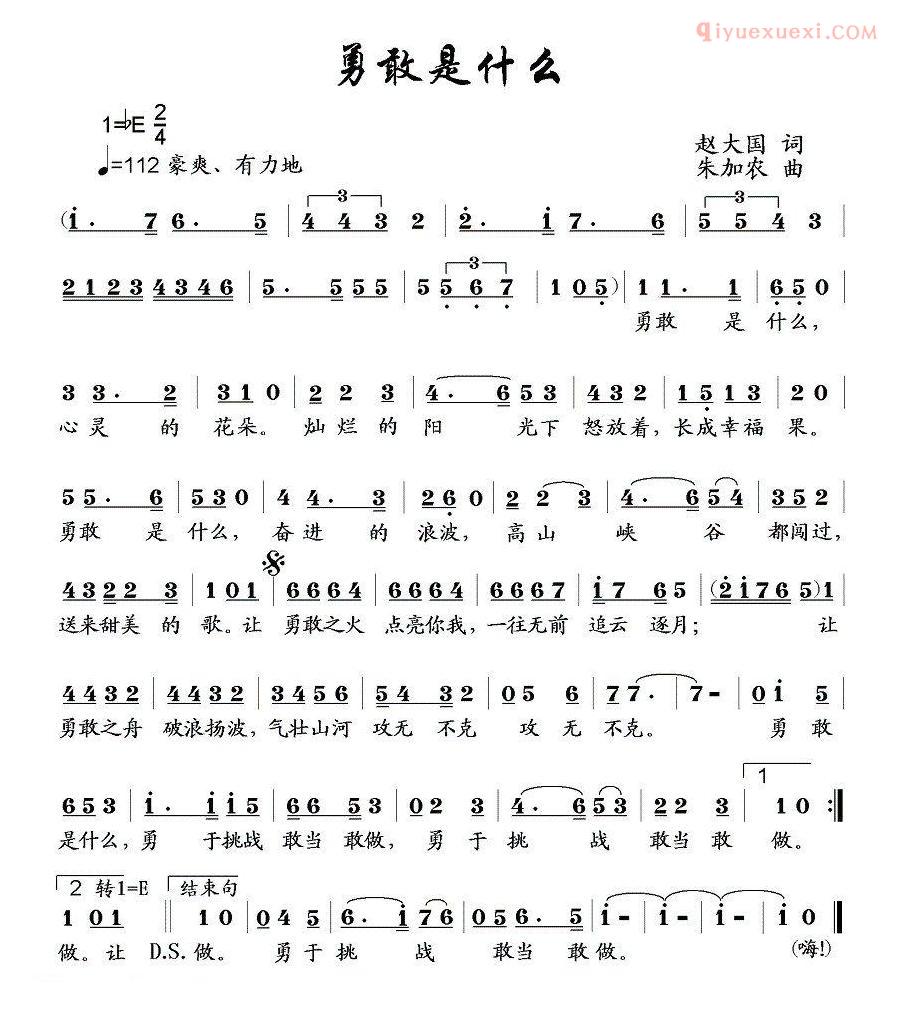 qiyuexuexi.COM
勇敢是什么
1=♭E 2/4
♩=112 豪爽、有力地
赵大国 词
朱加农 曲
(i· 7 6· 5 | 4 4 3 2 | 2· i 7· 6 | 5 5 4 3 |
2123 4346 | 5· 5 5 5 5 | 5 5 6 7 | 1 0 5) | 1 1· 1 | 6 5 0 |
勇敢 是 什么,
3 3· 2 | 3 1 0 | 2 2 3 | 4· 6 5 3 | 4 3 2 | 1 5 1 3 | 2 0 |
心灵 的 花朵。 灿烂的阳 光下 怒放着,长成幸福 果。
5 5· 6 | 5 3 0 | 4 4· 3 | 2 6 0 | 2 2 3 | 4· 6 5 4 | 3 5 2 |
勇敢 是 什么, 奋进 的 浪波, 高山 峡 谷 都闯过,
4 3 2 2 3 | 1 0 1 | 6 6 6 4 | 6 6 6 4 | 6 6 6 7 | i 7 6 5 | (2 i 7 6 5) 1 |
送来甜美 的 歌。让 勇敢之火 点亮你我,一往无前 追云 逐月; 让
4 4 3 2 | 4 4 3 2 | 3 4 5 6 | 5 4 3 2 | 0 5 6 | 7 7· | 7 - | 0 i 5 |
勇敢之舟 破浪扬波,气壮山河 攻无 不克 攻 无 不克。 勇敢
1
6 5 3 | i· i i i 5 | 6 6 5 3 | 0 2 3 | 4· 6 5 3 | 2 2 3 | 1 0 :‖
是什么,勇 于挑战 敢当 敢做, 勇 于 挑 战 敢当 敢 做。
2 转1=E 结束句
1 0 1 ‖ 1 0 | 0 4 5 | 6· i 7 6 | 0 5 6· 5 | i - | i - | i - | i 0 ‖
做。让 D.S.做。 勇于挑 战 敢当 敢做。 (嗨!)